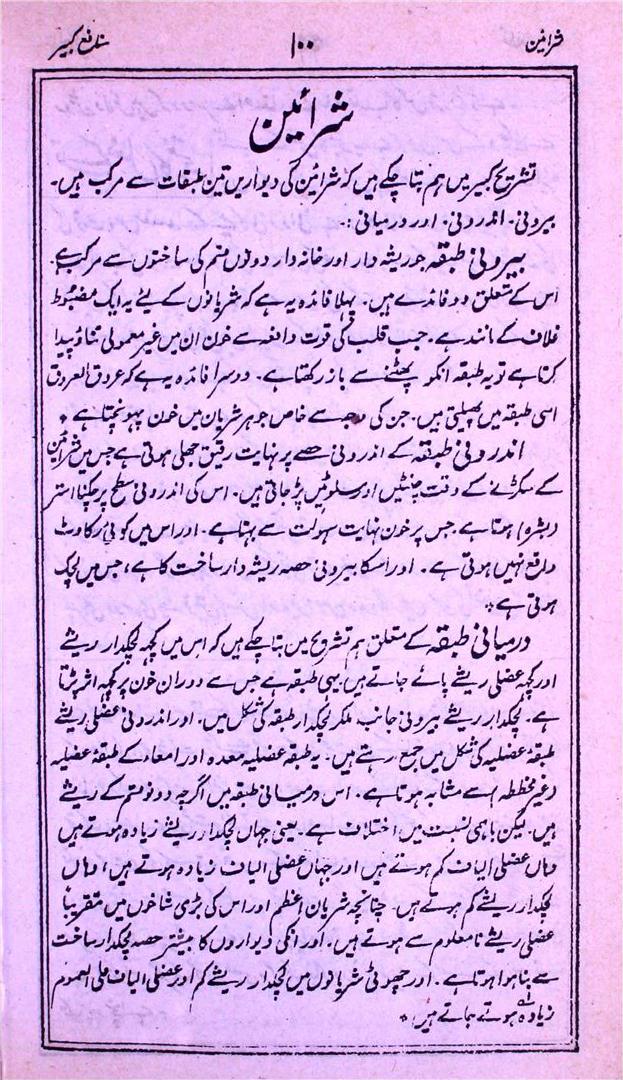 شرائین ۱۰۰ منافع کبیر
شرائین
تشریح کبیر میں ہم بتا چکے ہیں کہ شرائین کی دیواریں تین طبقات سے مرکب ہیں۔
بیرونی۔ اندرونی۔ اور درمیانی :۔
بیرونی طبقہ جو ریشہ دار اور خانہ دار دونوں قسم کی ساختوں سے مرکب ہے۔
اس کے متعلق دو فائدے ہیں۔ پہلا فائدہ یہ ہے کہ شریانوں کے لیئے یہ ایک مضبوط
غلاف کے مانند ہے۔ جب قلب کی قوت دافعہ سے خون ان میں غیر معمولی تناؤ پیدا
کرتا ہے تو یہ طبقہ انکو پھٹنے سے باز رکھتا ہے۔ دوسرا فائدہ یہ ہے کہ عروق العروق
اسی طبقہ میں پھیلتی ہیں۔ جن کی وجہ سے خاص جوہر شریان میں خون پہونچتا ہے ٭
اندرونی طبقہ کے اندرونی حصے پر نہایت رقیق جھلی ہوتی ہے جس میں شرائین
کے سکڑنے کے وقت چنٹیں اور سلوٹیں پڑ جاتی ہیں۔ اس کی اندرونی سطح پر چکنا استر
(بشرہ) ہوتا ہے۔ جس پر خون نہایت سہولت سے بہتا ہے۔ اور اس میں کوئی رکاوٹ
واقع نہیں ہوتی ہے۔ اور اسکا بیرونی حصہ ریشہ دار ساخت کا ہے، جس میں لچک
ہوتی ہے ٭
درمیانی طبقہ کے متعلق ہم تشریح میں بتا چکے ہیں کہ اس میں کچھ لچکدار ریشے
اور کچھ عضلی ریشے پائے جاتے ہیں یہی طبقہ ہے جس سے دوران خون پر کچھ اثر پڑتا
ہے۔ لچکدار ریشے بیرونی جانب ملکر لچکدار طبقہ کی شکل میں۔ اور اندرونی عضلی ریشے
طبقہ عضلیہ کی شکل میں جمع رہتے ہیں۔ یہ طبقہ عضلیہ معدہ اور امعاء کے طبقۂ عضلیہ
(غیر مخططہ) سے مشابہ ہوتا ہے۔ اس درمیانی طبقہ میں اگرچہ دونو قسم کے ریشے
ہیں۔ لیکن باہمی نسبت میں اختلاف ہے۔ یعنی جہاں لچکدار ریشے زیادہ ہوتے ہیں
وہاں عضلی الیاف کم ہوتے ہیں اور جہاں عضلی الیاف زیادہ ہوتے ہیں، وہاں
لچکدار ریشے کم ہوتے ہیں۔ چنانچہ شریان اعظم اور اس کی بڑی شاخوں میں تقریباً
عضلی ریشے نامعلوم سے ہوتے ہیں۔ اور انکی دیواروں کا بیشتر حصہ لچکدار ساخت
سے بنا ہوا ہوتا ہے۔ اور چھوٹی شریانوں میں لچکدار ریشے کم اور عضلی الیاف علی العموم
زیادہ ہوتے جاتے ہیں ٭